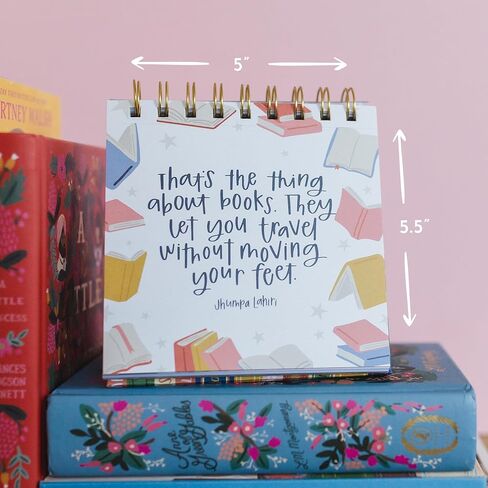 5"
That's the thing
about books. They
let you travel
without moving
your feet.
Jhumpa Lahiri
5.5"
RTNEY WALSH
A
LITTLE
TTLE
NCESS
FRANCES
HODGSON
BURNETT
Anne of
Green Gables
L.M. Montgomery